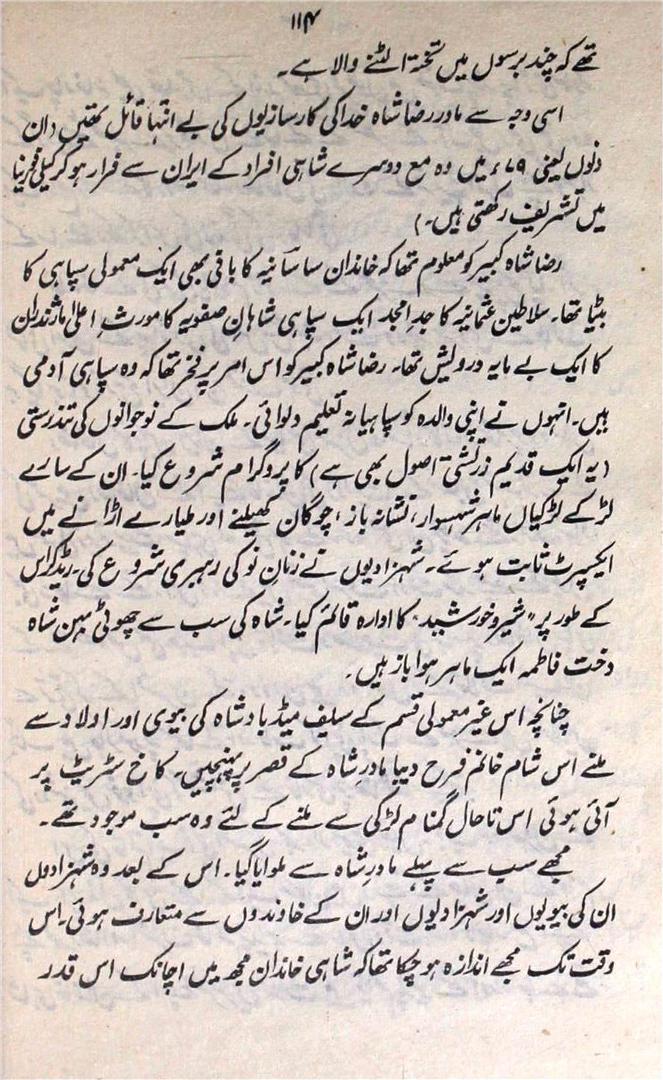 ۱۱۴
تھے کہ چند برسوں میں تختہ الٹنے والا ہے۔
اسی وجہ سے مادر رضا شاہ خدا کی کارسازیوں کی بے انتہا قائل تھیں (ان
دنوں یعنی ۷۹ء میں وہ مع دوسرے شاہی افراد کے ایران سے فرار ہو کر کیلی فورنیا
میں تشریف رکھتی ہیں۔)
رضا شاہ کبیر کو معلوم تھا کہ خاندان ساسانیہ کا بانی بھی ایک معمولی سپاہی کا
بیٹا تھا۔ سلاطین عثمانیہ کا جدِ امجد ایک سپاہی شاہانِ صفویہ کا مورث اعلیٰ ماژندران
کا ایک بے مایہ درویش تھا۔ رضا شاہ کبیر کو اس امر پر فخر تھا کہ وہ سپاہی آدمی
ہیں۔ انہوں نے اپنی والدہ کو سپاہیانہ تعلیم دلوائی۔ ملک کے نوجوانوں کی تندرستی
(یہ ایک قدیم زرتشتی اصول بھی ہے) کا پروگرام شروع کیا۔ ان کے سارے
لڑکے لڑکیاں ماہر شہسوار، نشانہ باز، چوگان کھیلنے اور طیارے اڑانے میں
ایکسپرٹ ثابت ہوئے۔ شہزادیوں نے زنانِ نو کی رہبری شروع کی۔ ریڈ کراس
کے طور پر "شیر و خورشید" کا ادارہ قائم کیا۔ شاہ کی سب سے چھوٹی بہن شاہ
دخت فاطمہ ایک ماہر ہوا باز ہیں۔
چنانچہ اس غیر معمولی قسم کے سیلف میڈ بادشاہ کی بیوی اور اولاد سے
ملنے اس شام خانم فرح دیبا مادرِ شاہ کے قصر پر پہنچیں۔ کاخ سٹریٹ پر
آئی ہوئی اس تاحال گمنام لڑکی سے ملنے کے لئے وہ سب موجود تھے۔
مجھے سب سے پہلے مادرِ شاہ سے ملوایا گیا۔ اس کے بعد وہ شہزادوں
ان کی بیویوں اور شہزادیوں اور ان کے خاوندوں سے متعارف ہوئی۔ اس
وقت تک مجھے اندازہ ہو چکا تھا کہ شاہی خاندان مجھ میں اچانک اس قدر